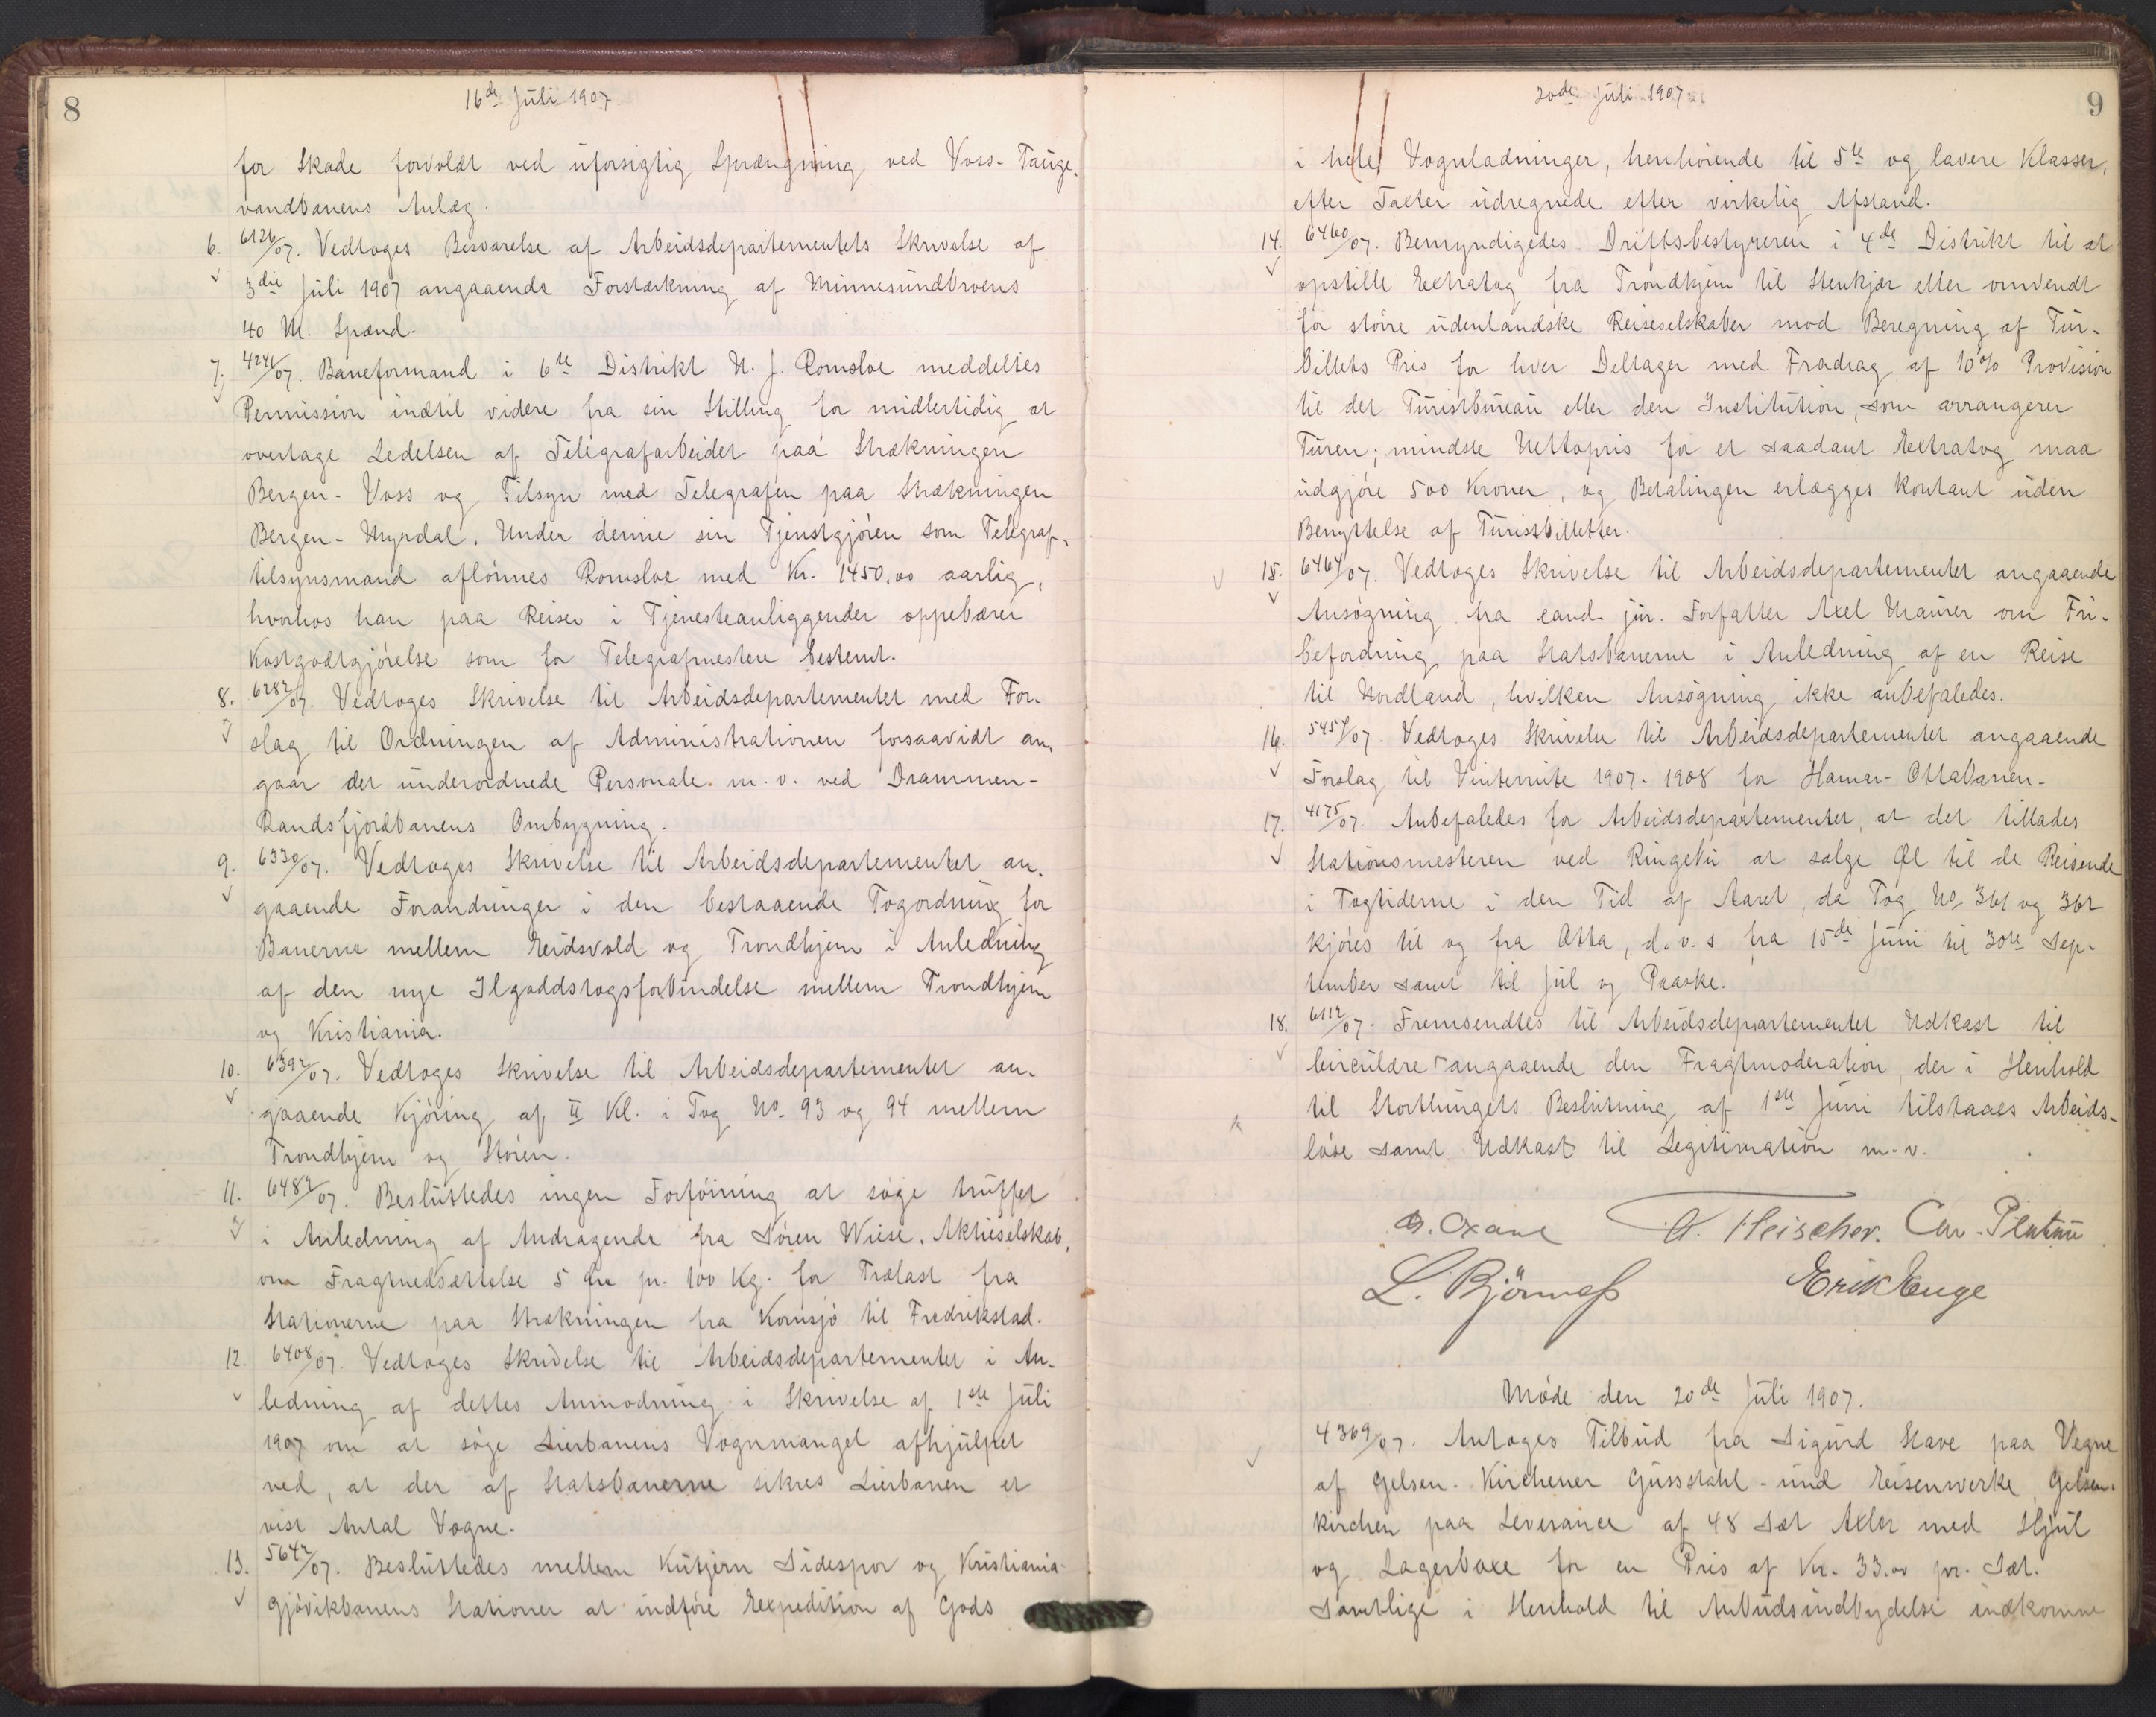 8
16de Juli 1907
for Skade forvoldt ved uforsigtig Sprængning ved Voss-Tauge-
vandbanens Anlæg.
6. 6126/07. Vedtoges Besvarelse af Arbeidsdepartementets Skrivelse af
3die Juli 1907 angaaende Forstærkning af Minnesundbroens
40 M. Spænd.
7. 4241/07. Baneformand i 6te Distrikt N. J. Romsloe meddeltes
Permission indtil videre fra sin Stilling for midlertidig at
overtage Ledelsen af Telegrafarbeidet paa Strækningen
Bergen-Voss og Tilsyn med Telegrafen paa Strækningen
Bergen-Myrdal. Under denne sin Tjenstgjøren som Telegraf-
tilsynsmand aflønnes Romsloe med Kr. 1450.00 aarlig,
hvorhos han paa Reiser i Tjenesteanliggender oppebærer
Kostgodtgjørelse som for Telegrafmestere bestemt.
8. 6282/07. Vedtoges Skrivelse til Arbeidsdepartementet med For-
slag til Ordningen af Administrationen forsaavidt an-
gaar det underordnede Personale m. v. ved Drammen-
Randsfjordbanens Ombygning.
9. 6330/07. Vedtoges Skrivelse til Arbeidsdepartementet an-
gaaende Forandringer i den bestaaende Togordning for
Banerne mellem Eidsvold og Trondhjem i Anledning
af den nye Ilgodstogsforbindelse mellem Trondhjem
og Kristiania.
10. 6392/07. Vedtoges Skrivelse til Arbeidsdepartementet an-
gaaende Kjøring af II Kl. i Tog No. 93 og 94 mellem
Trondhjem og Støren.
11. 6483/07. Besluttedes ingen Forføining at søge truffet
i Anledning af Andragende fra Søren Wiese, Aktieselskab,
om Fragtnedsættelse 5 Øre pr. 100 Kg. for Trælast fra
Stationerne paa Strækningen fra Kornsjø til Fredrikstad.
12. 6408/07. Vedtoges Skrivelse til Arbeidsdepartementet i An-
ledning af dettes Anmodning i Skrivelse af 1ste Juli
1907 om at søge Lierbanens Vognmangel afhjulpet
ved, at der af Statsbanerne sikres Lierbanen et
vist Antal Vogne.
13. 5642/07. Besluttedes mellem Kutjern Sidespor og Kristiania-
Gjøvikbanens Stationer at indføre Expedition af Gods
20de Juli 1907
9
i hele Vognladninger, henhørende til 5te og lavere Klasser,
efter Taxter udregnede efter virkelig Afstand.
14. 6460/07. Bemyndigedes Driftsbestyreren i 4de Distrikt til at
opstille Extratog fra Trondhjem til Stenkjær eller omvendt
for større udenlandske Reiseselskaber mod Beregning af Tur-
billets Pris for hver Deltager med Fradrag af 10% Provision
til det Turistbureau eller den Institution, som arrangerer
Turen; mindste Nettopris for et saadant Extratog maa
udgjøre 500 Kroner, og Betalingen erlægges kontant uden
Benyttelse af Turistbilletter.
15. 6464/07. Vedtoges Skrivelse til Arbeidsdepartementet angaaende
Ansøgning fra cand. jur. Forfatter Axel Maurer om Fri-
befordring paa Statsbanerne i Anledning af en Reise
til Nordland, hvilken Ansøgning ikke anbefaledes.
16. 5454/07. Vedtoges Skrivelse til Arbeidsdepartementet angaaende
Forslag til Vinterrute 1907-1908 for Hamar-Ottabanen.
17. 4175/07. Anbefaledes for Arbeidsdepartementet, at det tillades
Stationsmesteren ved Ringebu at sælge Øl til de Reisende
i Togtiderne i den Tid af Aaret, da Tog No. 361 og 362
kjøres til og fra Otta, d.v.s fra 15de Juni til 30te Sep-
tember samt til Jul og Paaske.
18. 6112/07. Fremsendtes til Arbeidsdepartementet Udkast til
Circulære angaaende den Fragtmoderation, der i Henhold
til Storthingets Beslutning af 1ste Juni tilstaaes Arbeids-
løse samt Udkast til Legitimation m. v.
A. Fleischer. Chr. Platou
L. Bjørness Erik Enge
Møde den 20de Juli 1907.
4369/07. Antoges Tilbud fra Sigurd Stave paa Vegne
af Gelsen-Kirchener Gussstahl- und Eisenwerke, Gelsen-
kirchen paa Leverance af 48 Sæt Axler med Hjul
og Lagerboxe for en Pris af Kr. 33.00 pr. Sæt.
Samtlige i Henhold til Anbudsindbydelse indkomne